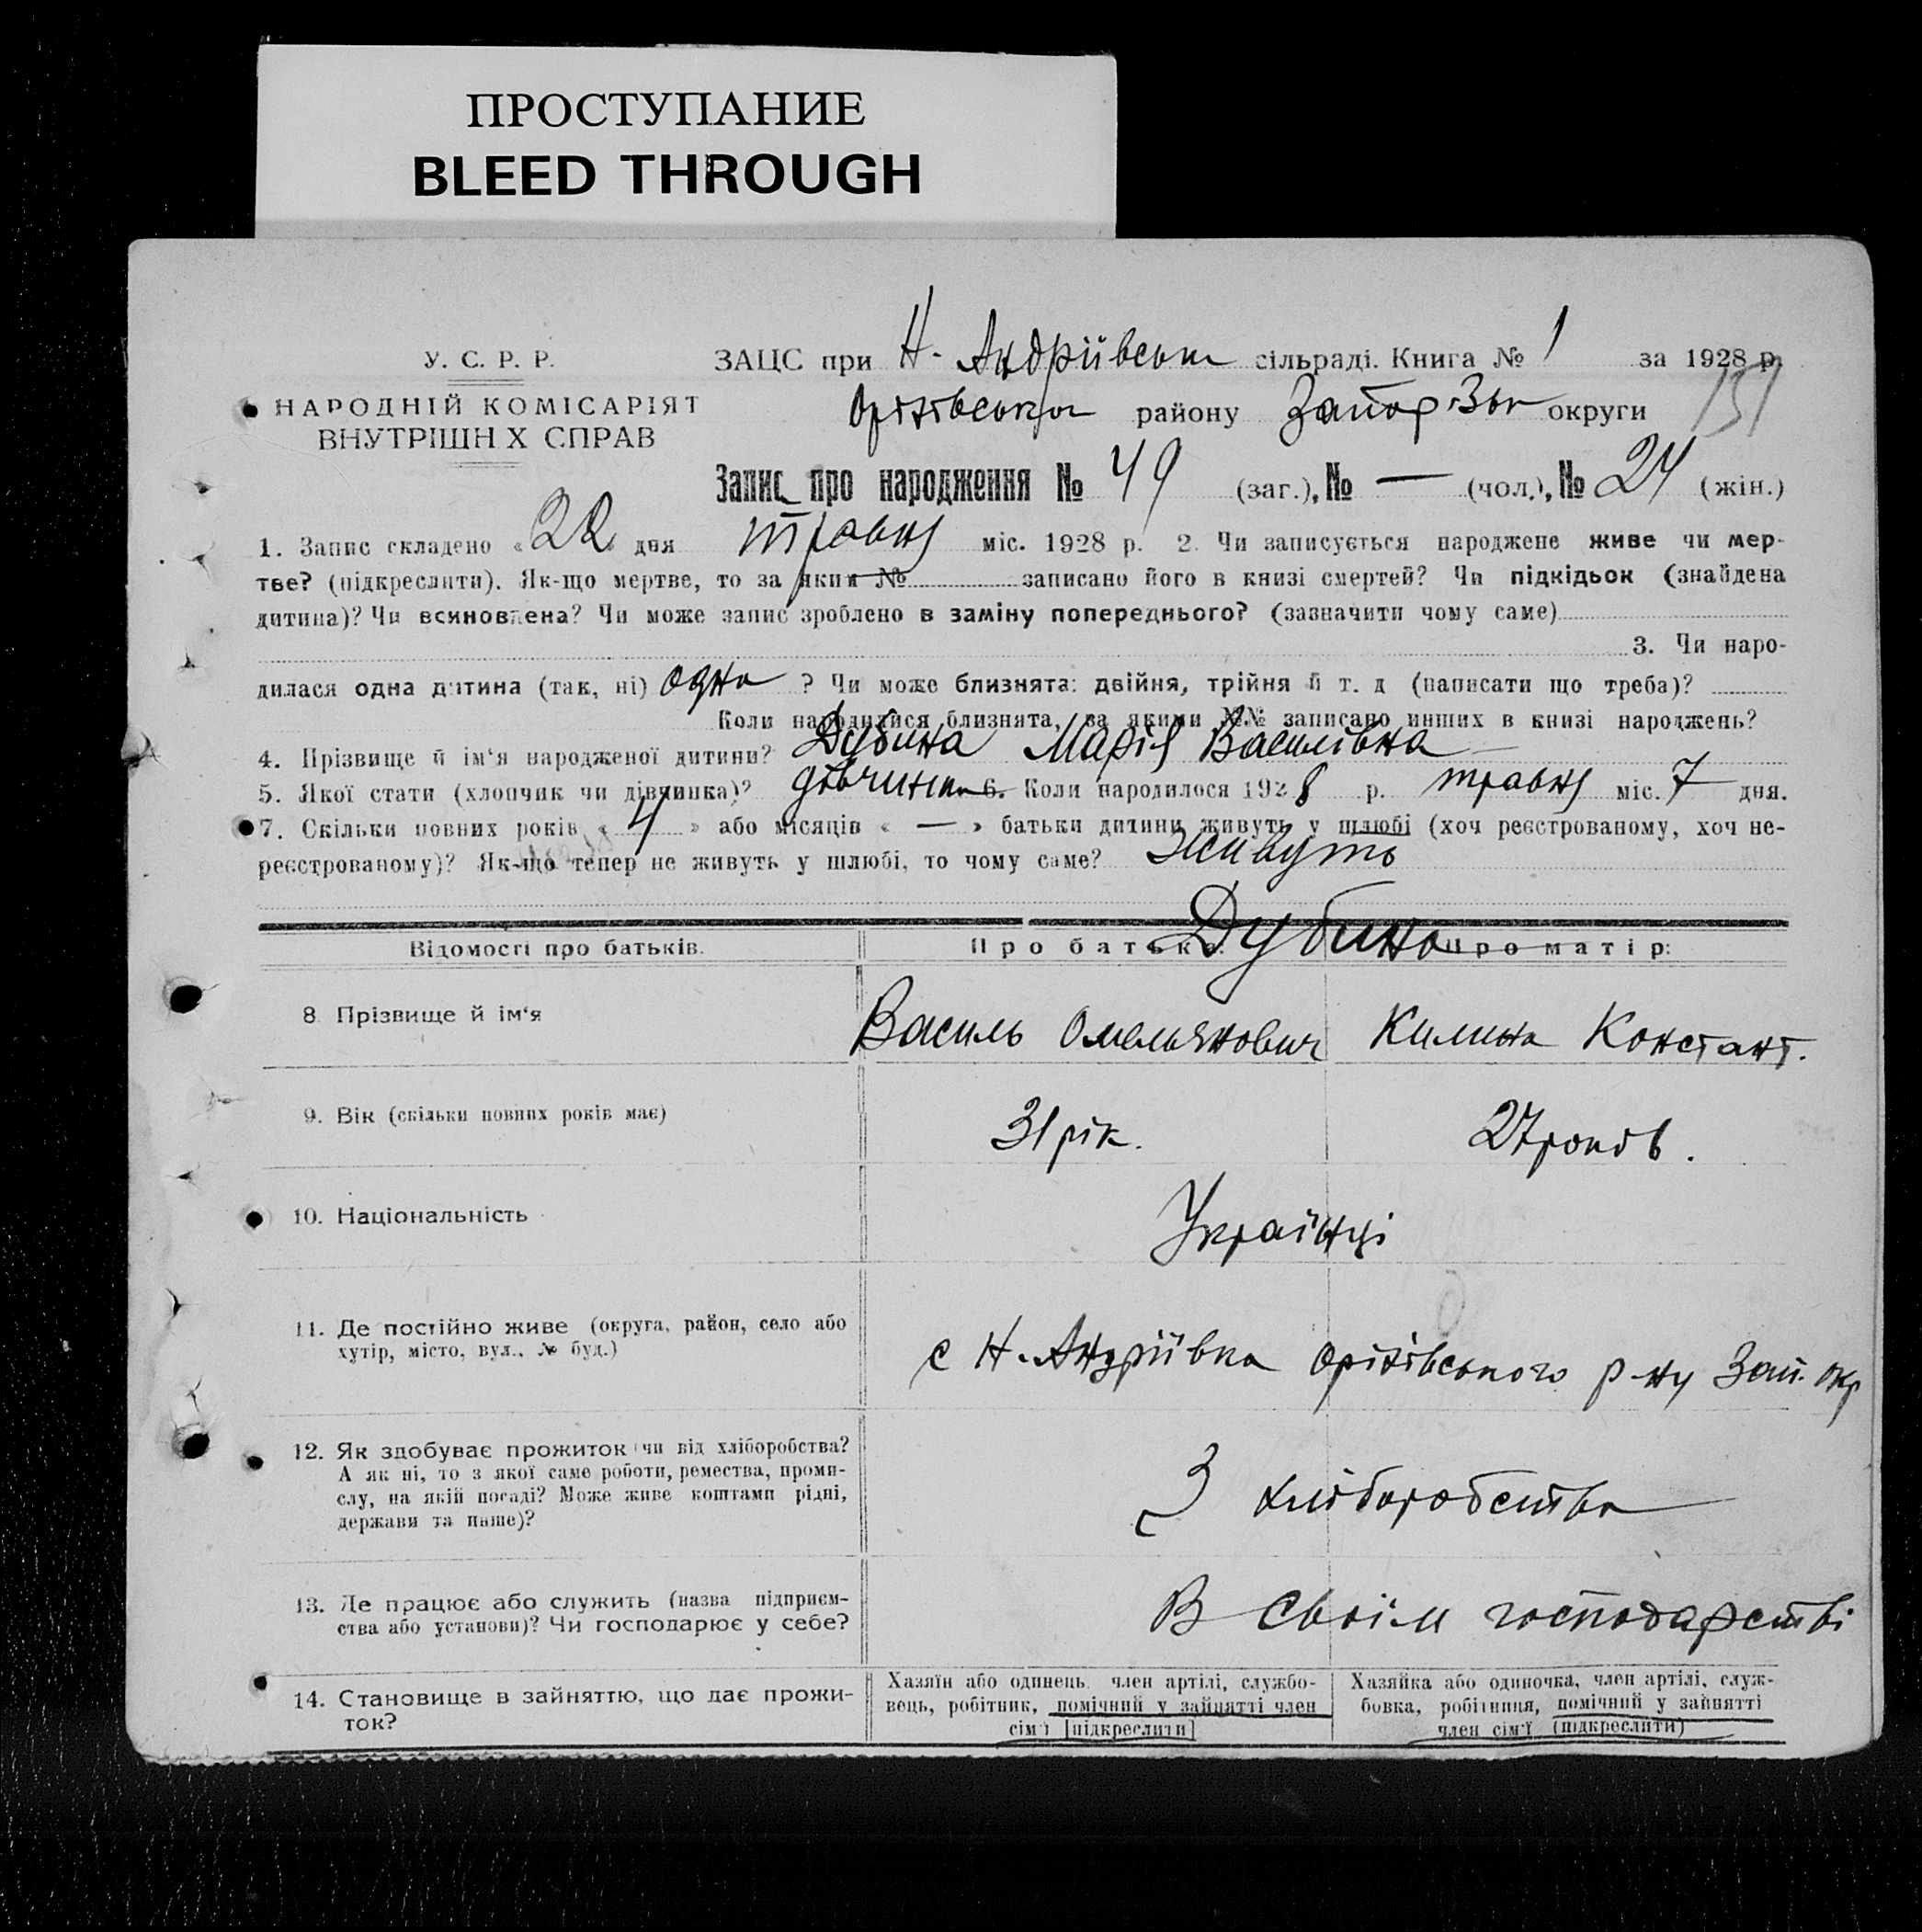 ПРОСТУПАНИЕ
BLEED THROUGH
У. С. Р. Р.
НАРОДНІЙ КОМІСАРІЯТ
ВНУТРІШН Х СПРАВ
ЗАЦС при Н. Андріівськ сільраді. Книга № 1 за 1928 р.
Оріхівськ району Запоріз. округи 151
Запис про народження № 49 (заг.), № — (чол.), № 24 (жін.)
1. Запис складено « 22 » дня травня міс. 1928 р. 2. Чи записується народжене живе чи мер-
тве? (підкреслити). Як-що мертве, то за яким № записано його в книзі смертей? Чи підкідьок (знайдена
дитина)? Чи всиновлена? Чи може запис зроблено в заміну попереднього? (зазначити чому саме)
3. Чи наро-
дилася одна дитина (так, ні) одна ? Чи може близнята: двійня, трійня й т. д (написати що треба)?
Коли народилися близнята, за якими №№ записано инших в книзі народжень?
4. Прізвище й ім‘я народженої дитини? Дубина Марія Василівна
5. Якої стати (хлопчик чи дівчинка)? дівчинка 6. Коли народилося 1928 р. травня міс. 7 дня.
7. Скільки повних років « 4 » або місяців « — » батьки дитини живуть у шлюбі (хоч реєстрованому, хоч не-
реєстрованому)? Як-що тепер не живуть у шлюбі, то чому саме? Живуть
Відомості про батьків. Про батька: Дубина Про матір:
8. Прізвище й ім‘я Василь Омельянович Килина Констант.
9. Вік (скільки повних років має) 31 рік. 27 років.
10. Національність Українці
11. Де постійно живе (округа, район, село або
хутір, місто, вул., № буд.) с Н. Андріївка Оріхівського р-ну Зап. окр
12. Як здобуває прожиток чи від хліборобства?
А як ні, то з якої саме роботи, ремества, проми-
слу, на якій посаді? Може живе коштами рідні,
держави та инше)? З хліборобства
13. Де працює або служить (назва підприєм-
ства або установи)? Чи господарює у себе? В своїм господарстві
14. Становище в зайняттю, що дає прожи-
ток?
Хазяїн або одинець, член артілі, службо-
вець, робітник, помічний у зайнятті член
сім‘ї [підкреслити]
Хазяйка або одиночка, член артілі, служ-
бовка, робітниця, помічний у зайнятті
член сім‘ї (підкреслити)